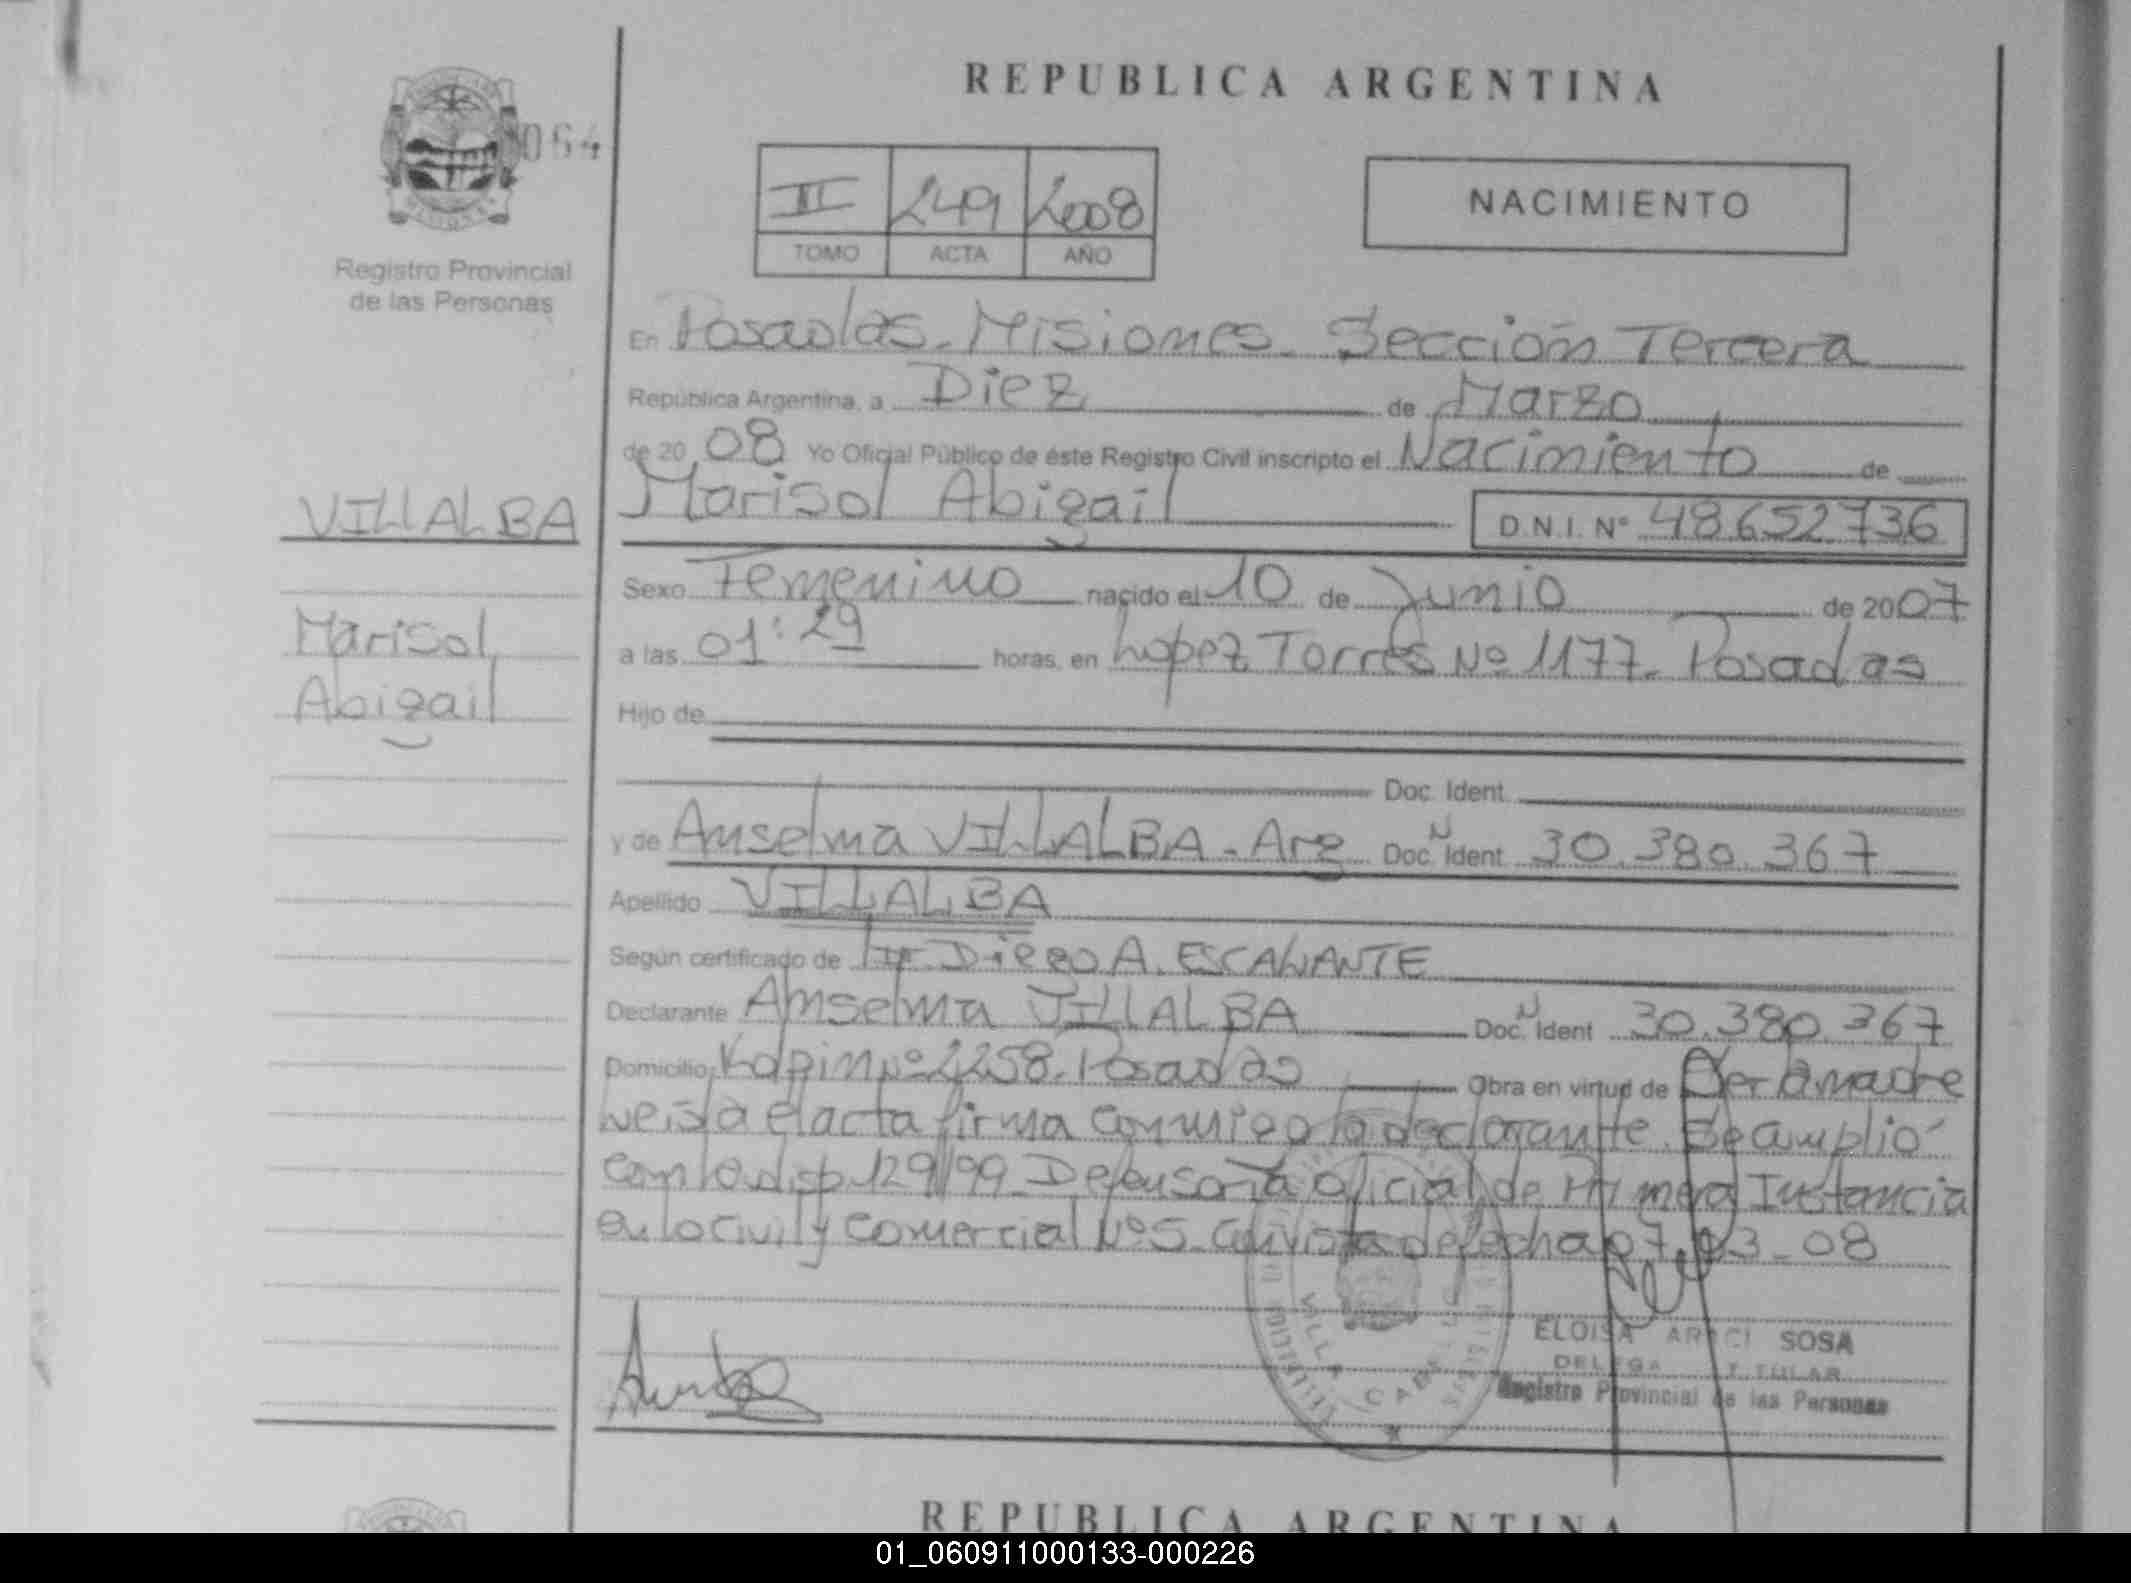 REPUBLICA ARGENTINA
064
Registro Provincial
de las Personas
II 249 2008
TOMO ACTA AÑO
NACIMIENTO
En Posadas - Misiones - Sección Tercera
República Argentina, a Diez de Marzo
de 20 08 Yo Oficial Público de éste Registro Civil inscripto el Nacimiento de
Marisol Abigail D.N.I. Nº 48.652.736
VILLALBA
Marisol
Abigail
Sexo Femenino nacido el 10 de Junio de 2007
a las 01:29 horas, en Lopez Torres Nº 1177 - Posadas
Hijo de
Doc. Ident.
y de Anselma VILLALBA - Arg Doc. N Ident. 30.380.367
Apellido VILLALBA
Según certificado de Diego A. ESCALANTE
Declarante Anselma VILLALBA Doc. N Ident 30.380.367
Domicilio Nº 2258 - Posadas Obra en virtud de Ser la madre
leida el acta firma conmigo la declarante. Se amplió
con la disp. 129/99 Defensoría oficial de Primera Instancia
en lo Civil y Comercial Nº 5 - con vista de fecha 07-03-08
VILLA CABELLO
ELOISA ARECI SOSA
DELEGA TITULAR
Registro Provincial de las Personas
REPUBLICA ARGENTINA
01_060911000133-000226